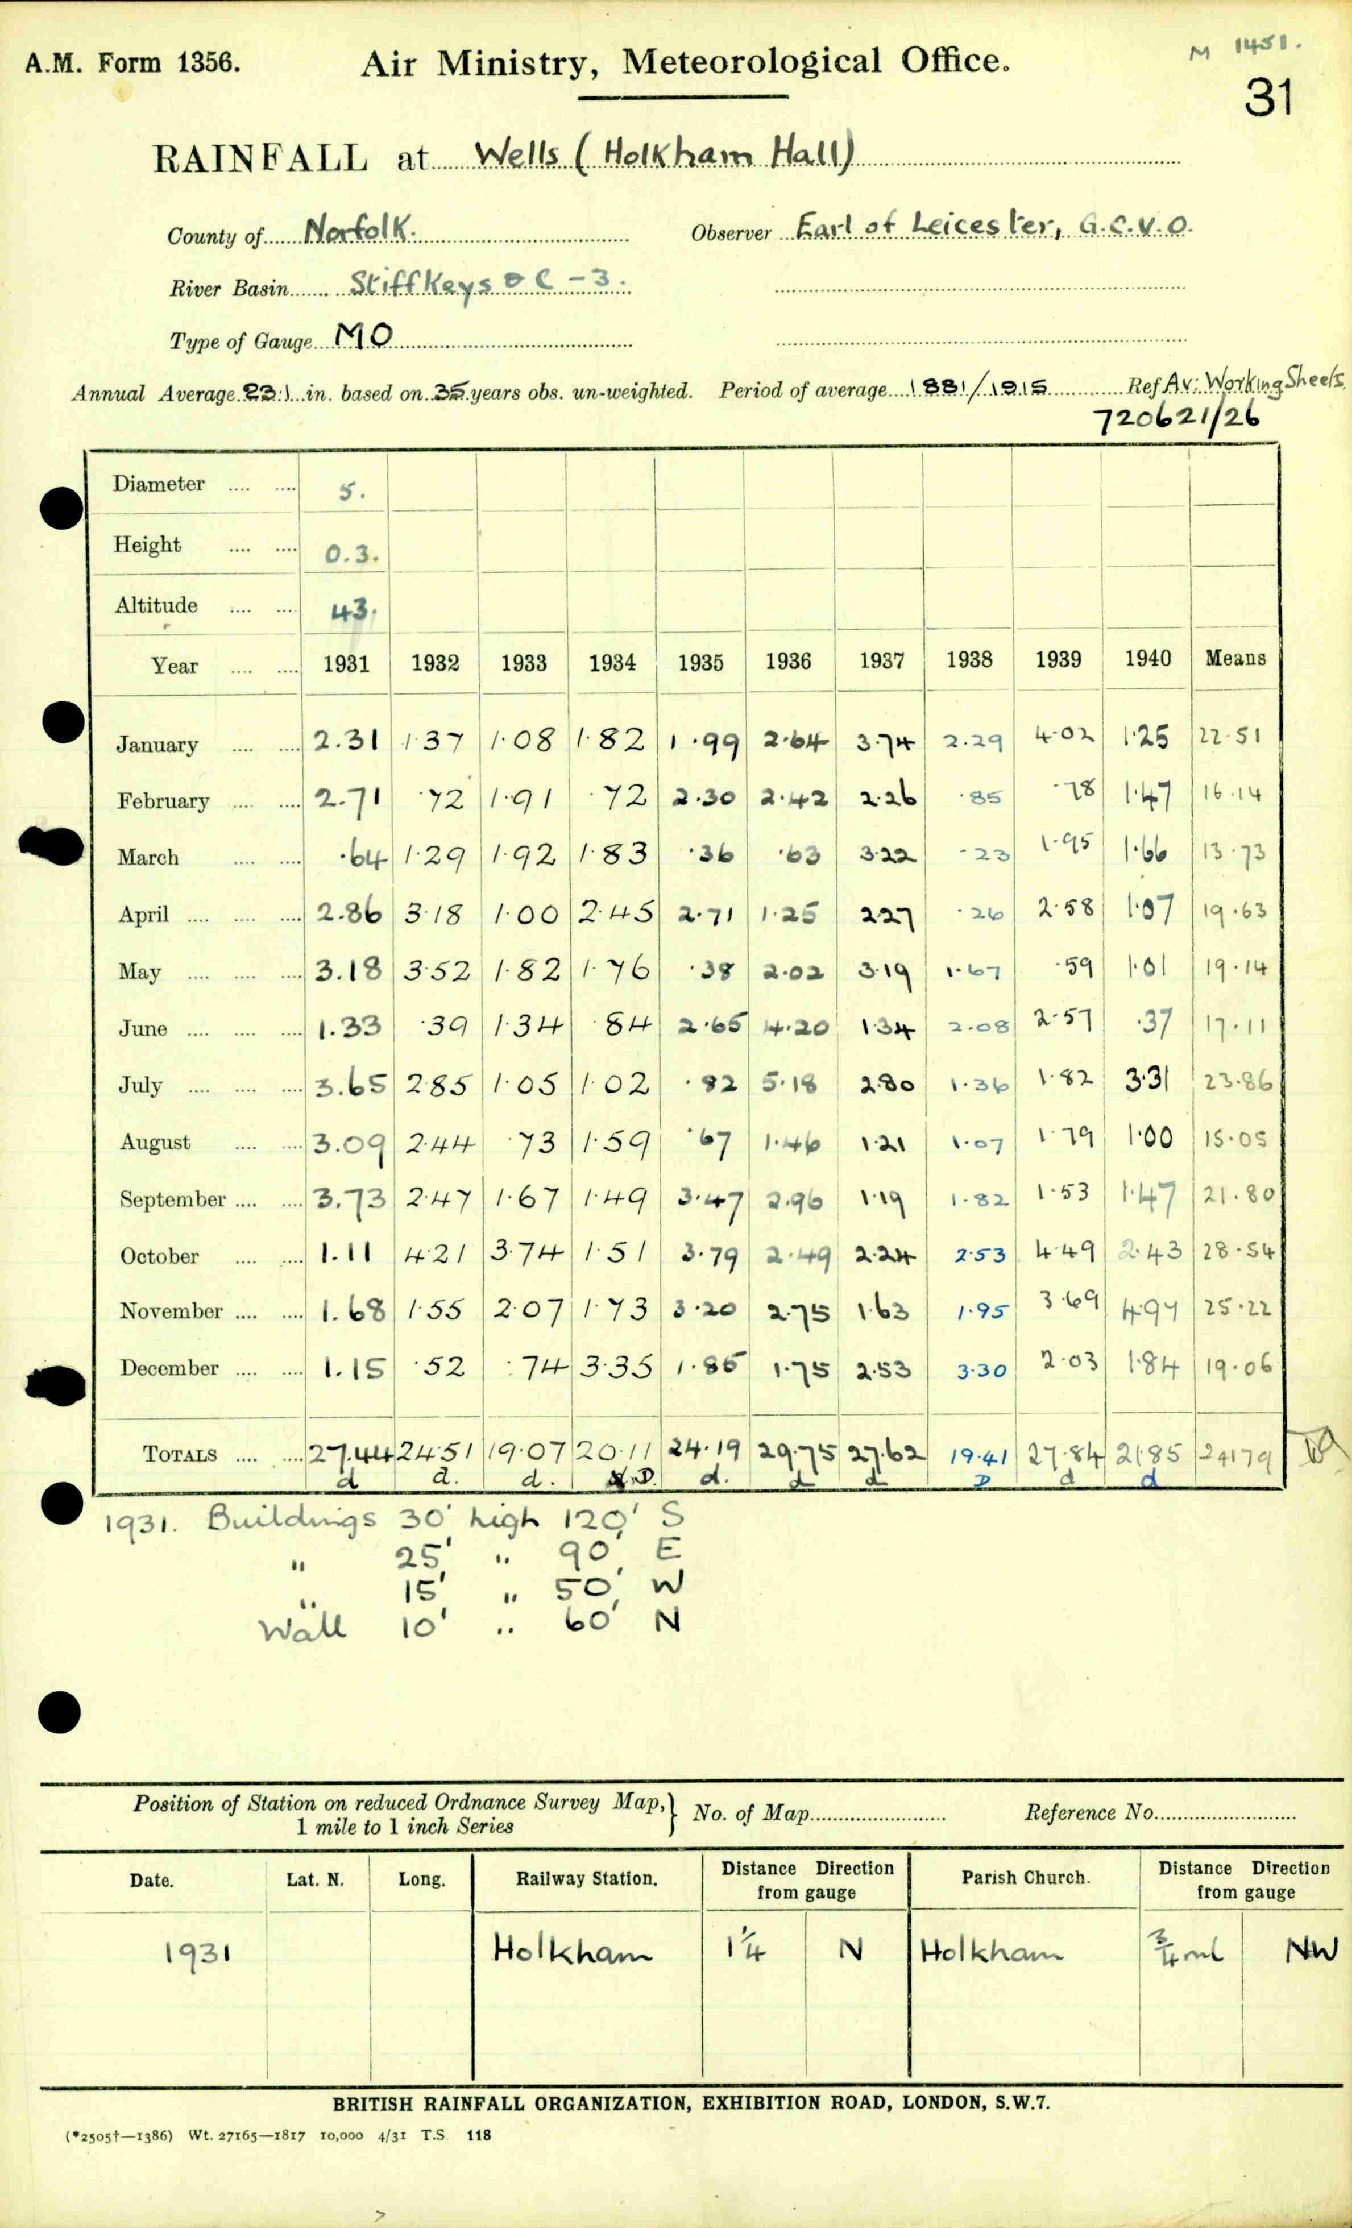 M 1451.
A.M. Form 1356. Air Ministry, Meteorological Office.
31
RAINFALL at Wells (Holkham Hall)
County of Norfolk. Observer Earl of Leicester, G.C.V.O.
River Basin Stiffkeys & C - 3.
Type of Gauge MO
Annual Average 23.1 in. based on 35 years obs. un-weighted. Period of average 1881/1915 Ref Av: Working Sheets
720621/26
Diameter .... .... 5.
Height .... .... 0.3.
Altitude .... .... 43.
Year .... .... 1931 1932 1933 1934 1935 1936 1937 1938 1939 1940 Means
January .... .... 2.31 1.37 1.08 1.82 1.99 2.64 3.74 2.29 4.02 1.25 22.51
February .... .... 2.71 .72 1.91 .72 2.30 2.42 2.26 .85 .78 1.47 16.14
March .... .... .64 1.29 1.92 1.83 .36 .63 3.22 .23 1.95 1.66 13.73
April .... .... .... 2.86 3.18 1.00 2.45 2.71 1.25 2.27 .26 2.58 1.07 19.63
May .... .... .... 3.18 3.52 1.82 1.76 .38 2.02 3.19 1.67 .59 1.01 19.14
June .... .... .... 1.33 .39 1.34 .84 2.65 4.20 1.34 2.08 2.57 .37 17.11
July .... .... .... 3.65 2.85 1.05 1.02 .82 5.18 2.80 1.36 1.82 3.31 23.86
August .... .... 3.09 2.44 .73 1.59 .67 1.46 1.21 1.07 1.79 1.00 15.05
September .... .... 3.73 2.47 1.67 1.49 3.47 2.96 1.19 1.82 1.53 1.47 21.80
October .... .... 1.11 4.21 3.74 1.51 3.79 2.49 2.24 2.53 4.49 2.43 28.54
November .... .... 1.68 1.55 2.07 1.73 3.20 2.75 1.63 1.95 3.69 4.97 25.22
December .... .... 1.15 .52 .74 3.35 1.85 1.75 2.53 3.30 2.03 1.84 19.06
TOTALS .... .... 27.44 24.51 19.07 20.11 24.19 29.75 27.62 19.41 27.84 21.85 24179
d d. d. D. d. d d D d d
1931. Buildings 30' high 120' S
" 25' " 90' E
" 15' " 50' W
Wall 10' " 60' N
Position of Station on reduced Ordnance Survey Map, } No. of Map Reference No.
1 mile to 1 inch Series
Date. Lat. N. Long. Railway Station. Distance Direction from gauge Parish Church. Distance Direction from gauge
1931 Holkham 1¼ N Holkham ¾ ml NW
BRITISH RAINFALL ORGANIZATION, EXHIBITION ROAD, LONDON, S.W.7.
(*2505†—1386) Wt. 27165—1817 10,000 4/31 T.S. 118